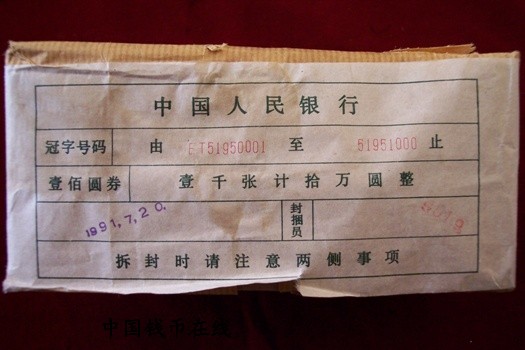 中国人民银行
冠字号码 由 ET51950001 至 51951000 止
壹佰圆券 壹千张计拾万圆整
1991,7,20. 封捆员
拆封时请注意两侧事项
中国钱币在线